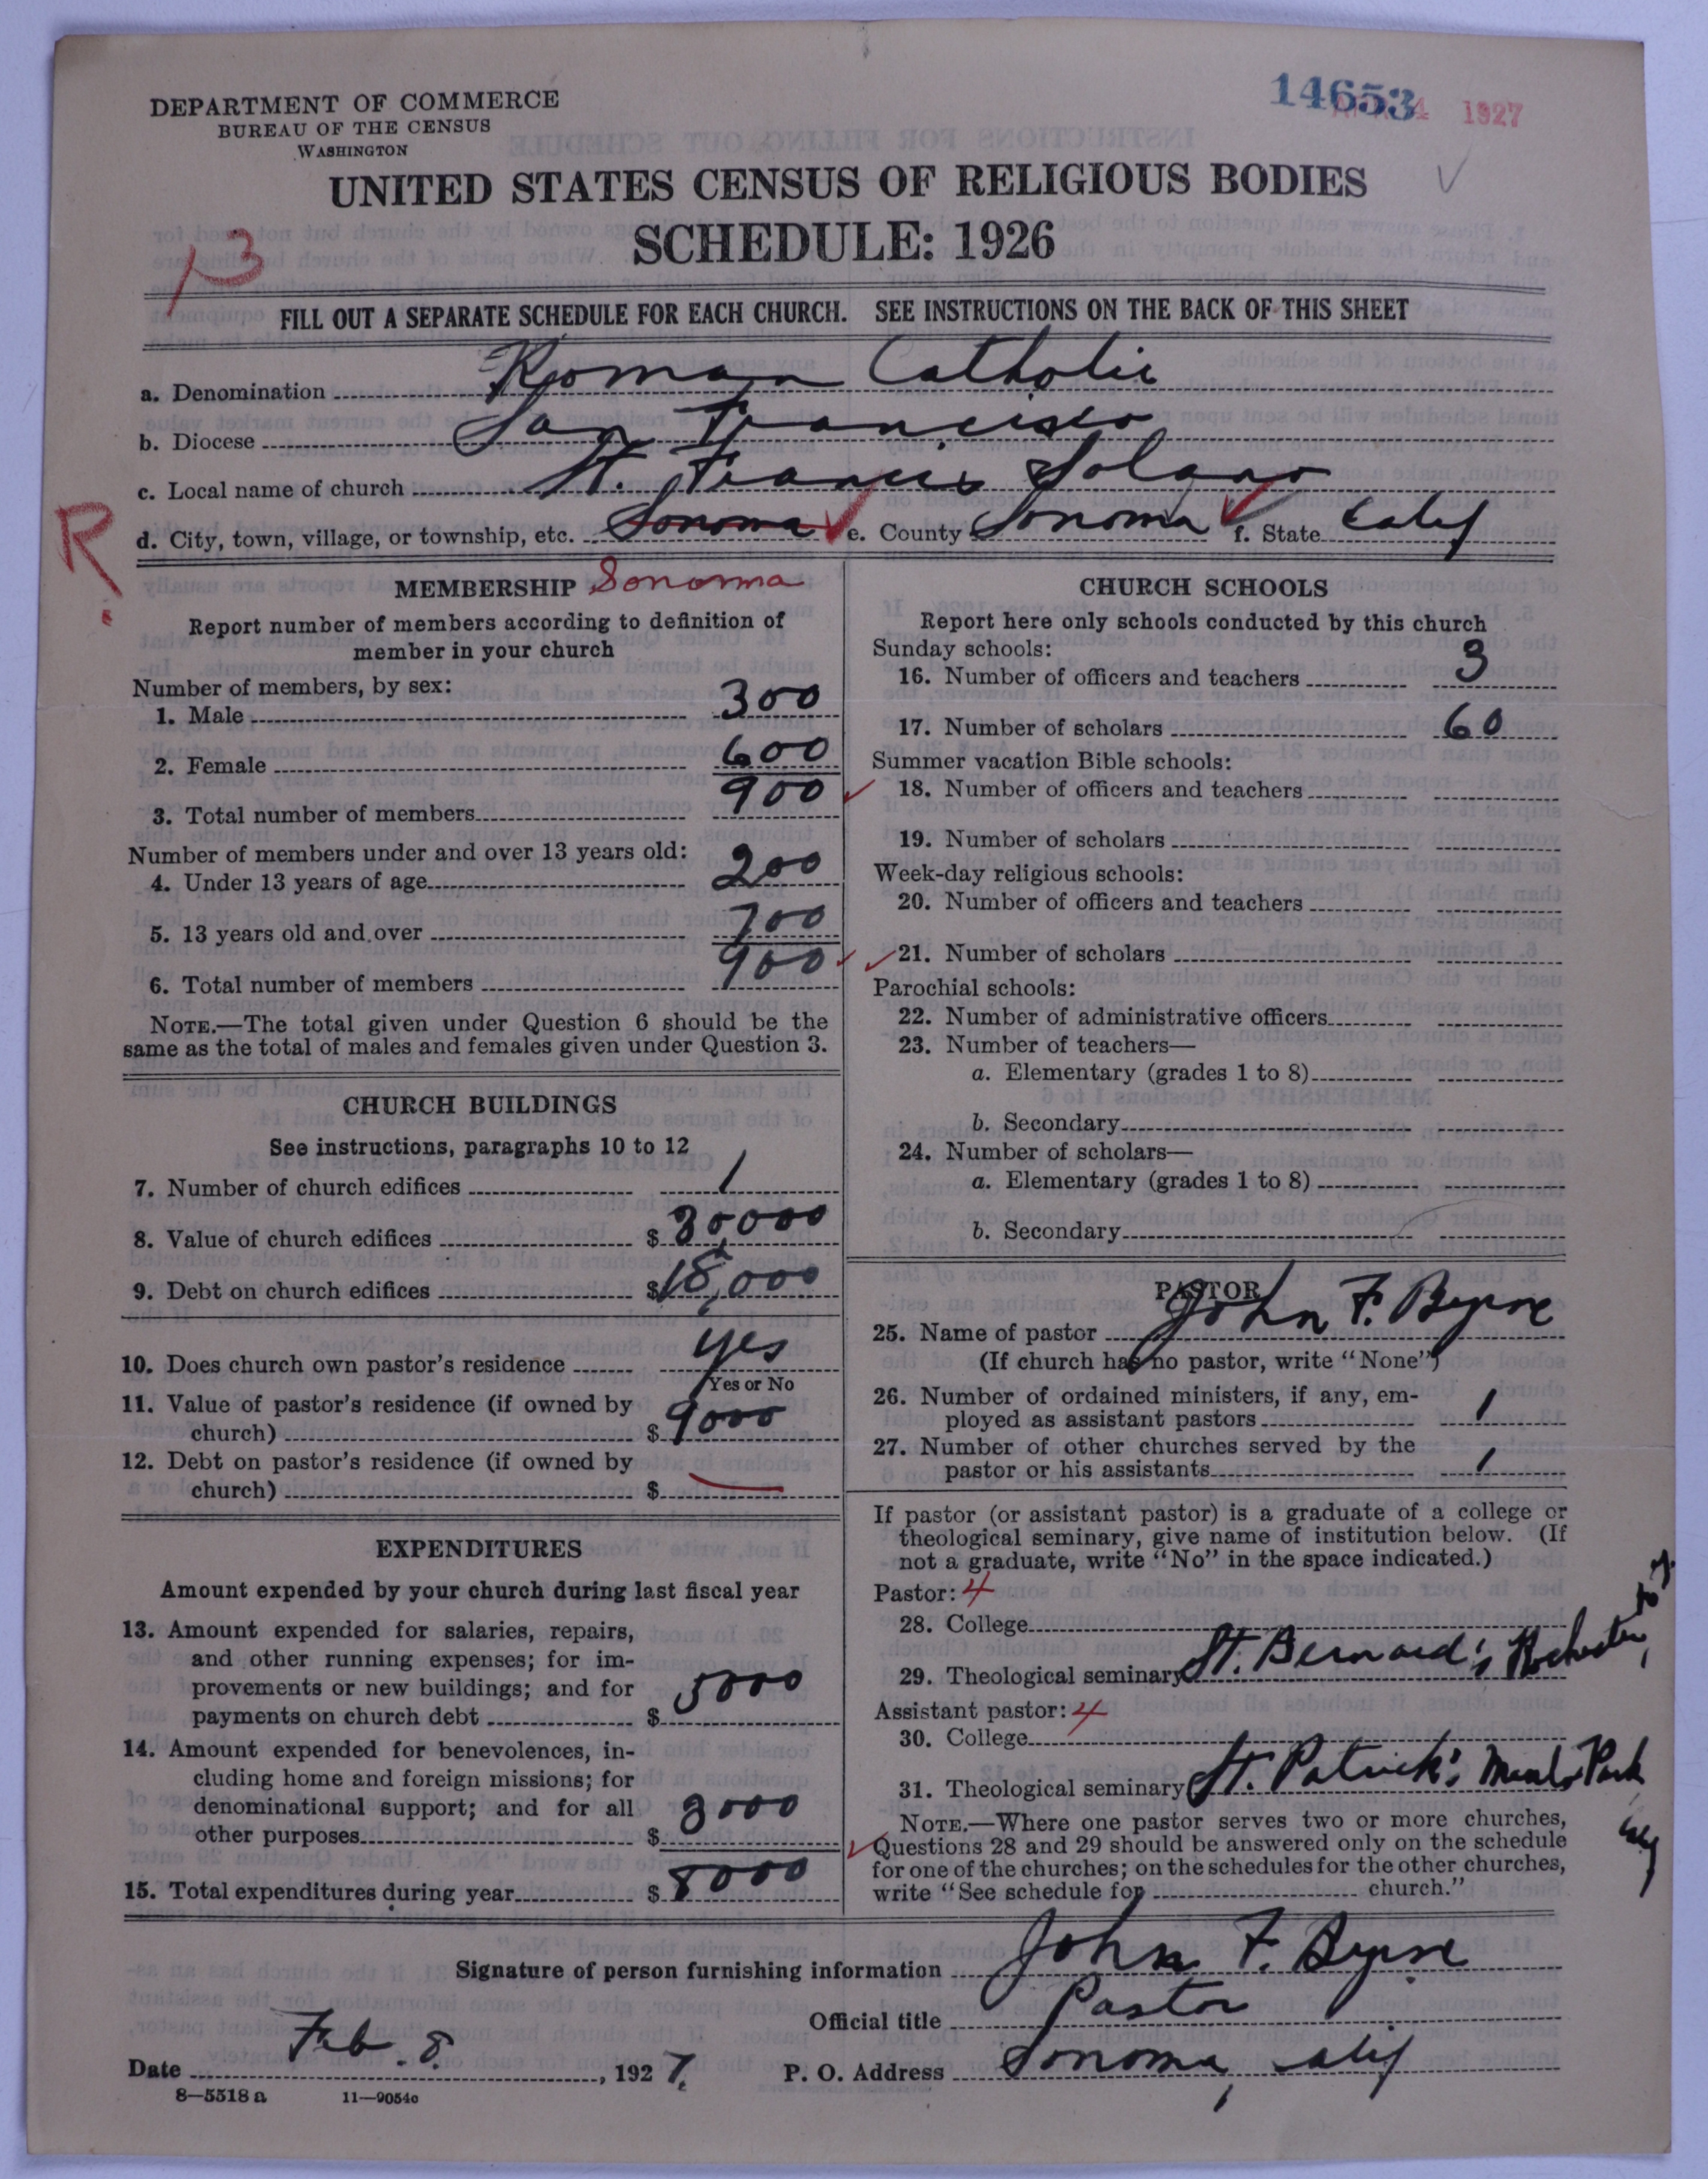 DEPARTMENT OF COMMERCE
BUREAU OF THE CENSUS
WASHINGTON
14653
1927
UNITED STATES CENSUS OF RELIGIOUS BODIES
SCHEDULE: 1926
13
FILL OUT A SEPARATE SCHEDULE FOR EACH CHURCH. SEE INSTRUCTIONS ON THE BACK OF THIS SHEET
a. Denomination Roman Catholic
b. Diocese San Francisco
c. Local name of church St. Francis Solano
R
d. City, town, village, or township, etc. Sonoma e. County Sonoma f. State Calif
MEMBERSHIP Sonoma
Report number of members according to definition of
member in your church
Number of members, by sex:
1. Male 300
2. Female 600
3. Total number of members 900
Number of members under and over 13 years old:
4. Under 13 years of age 200
5. 13 years old and over 700
6. Total number of members 900
NOTE.—The total given under Question 6 should be the
same as the total of males and females given under Question 3.
CHURCH BUILDINGS
See instructions, paragraphs 10 to 12
7. Number of church edifices 1
8. Value of church edifices $ 30,000
9. Debt on church edifices $ 18,000
10. Does church own pastor's residence yes
Yes or No
11. Value of pastor's residence (if owned by
church) $ 9000
12. Debt on pastor's residence (if owned by
church) $ —
EXPENDITURES
Amount expended by your church during last fiscal year
13. Amount expended for salaries, repairs,
and other running expenses; for im-
provements or new buildings; and for
payments on church debt $ 5000
14. Amount expended for benevolences, in-
cluding home and foreign missions; for
denominational support; and for all
other purposes $ 3000
15. Total expenditures during year $ 8000
CHURCH SCHOOLS
Report here only schools conducted by this church
Sunday schools:
16. Number of officers and teachers 3
17. Number of scholars 60
Summer vacation Bible schools:
18. Number of officers and teachers
19. Number of scholars
Week-day religious schools:
20. Number of officers and teachers
21. Number of scholars
Parochial schools:
22. Number of administrative officers
23. Number of teachers—
a. Elementary (grades 1 to 8)
b. Secondary
24. Number of scholars—
a. Elementary (grades 1 to 8)
b. Secondary
PASTOR
25. Name of pastor John F. Byrne
(If church has no pastor, write "None")
26. Number of ordained ministers, if any, em-
ployed as assistant pastors 1
27. Number of other churches served by the
pastor or his assistants 1
If pastor (or assistant pastor) is a graduate of a college or
theological seminary, give name of institution below. (If
not a graduate, write "No" in the space indicated.)
Pastor: 4
28. College
29. Theological seminary St. Bernard's Rochester, N.Y.
Assistant pastor: 4
30. College
31. Theological seminary St. Patrick's Menlo Park
Calif
NOTE.—Where one pastor serves two or more churches,
Questions 28 and 29 should be answered only on the schedule
for one of the churches; on the schedules for the other churches,
write "See schedule for church."
Signature of person furnishing information John F. Byrne
Official title Pastor
Date Feb. 8, 1927. P. O. Address Sonoma, Calif
8—5518 a 11—9054c